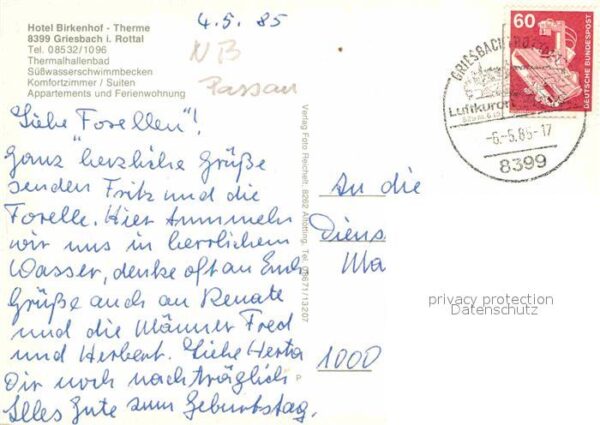 Hotel Birkenhof - Therme
8399 Griesbach i. Rottal
Tel. 08532/1096
Thermalhallenbad
Süßwasserschwimmbecken
Komfortzimmer / Suiten
Appartements und Ferienwohnung
4.5.85
NB
Passau
60
DEUTSCHE BUNDESPOST
GRIESBACH I ROTTAL
Luftkurort
-6.-5.85-17
8399
Liebe "Forellen"!
Ganz herzliche Grüße
senden Fritz und die
Forelle. Hier tummeln
wir uns in herrlichem
Wasser, denke oft an Euch
Grüße auch an Renate
und die Männer Fred
und Herbert. Liebe Herta
Dir noch nachträglich
Alles Gute zum Geburtstag.
Verlag Foto Reichelt, 8262 Altötting, Tel. 08671/13207
P
An die
Diens
Ma
1000
privacy protection
Datenschutz